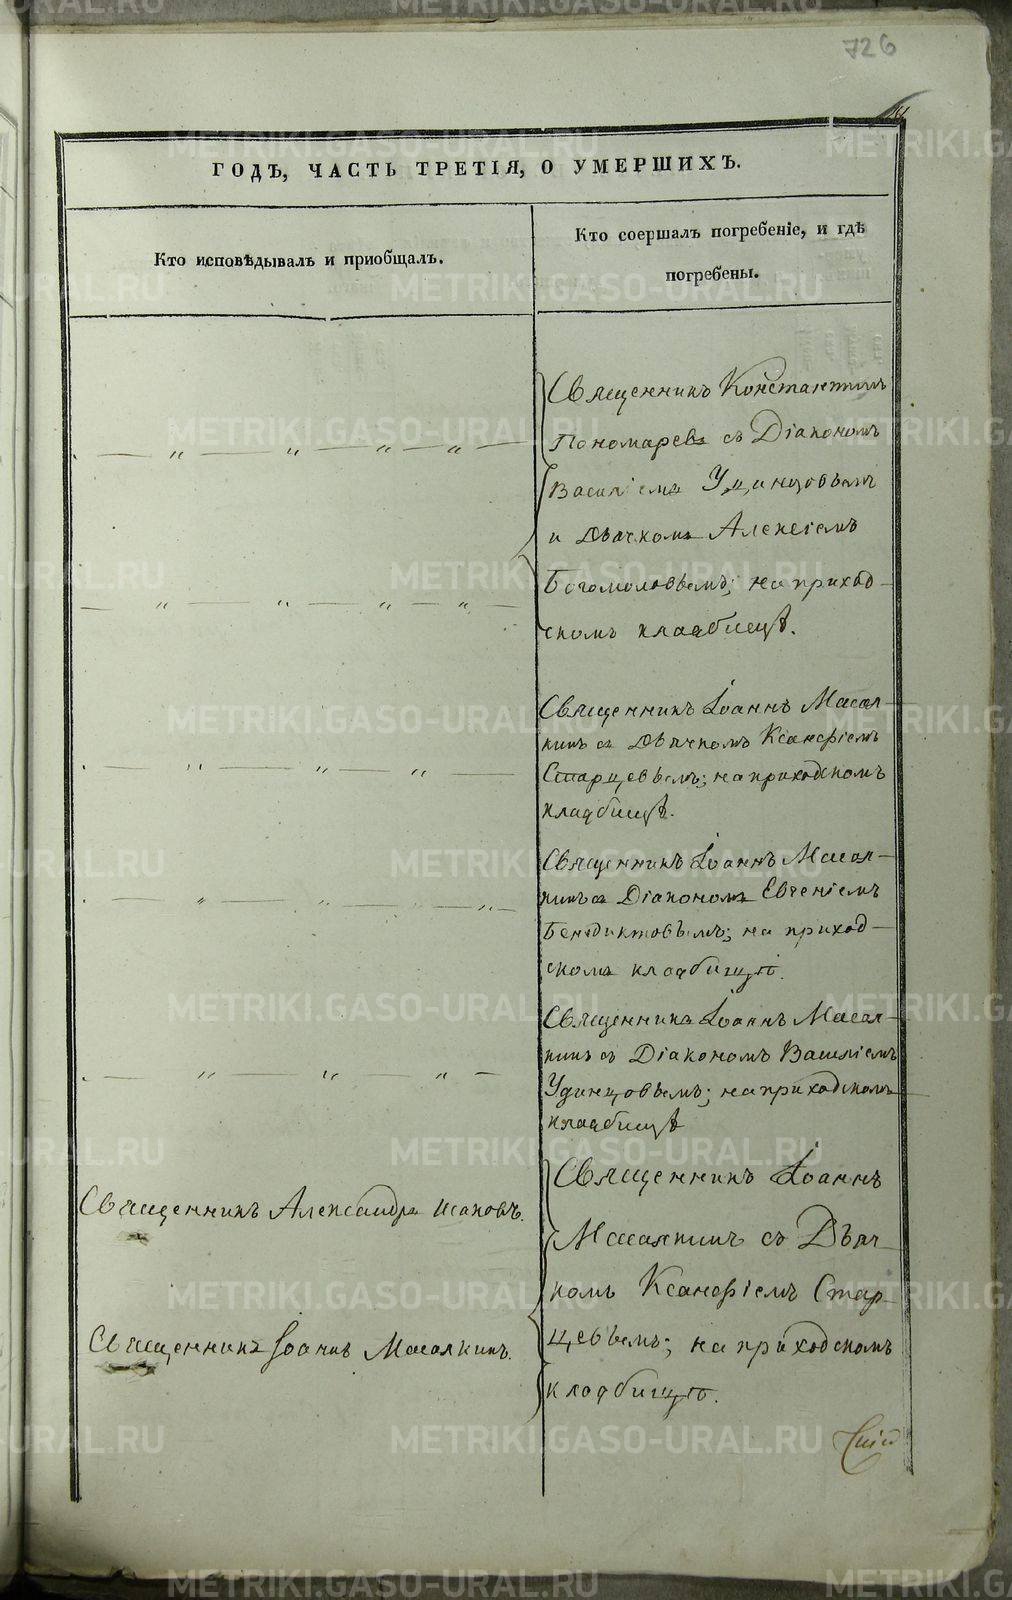 726
ГОДЪ, ЧАСТЬ ТРЕТІЯ, О УМЕРШИХЪ.
Кто исповѣдывалъ и приобщалъ.
Кто соершалъ погребеніе, и гдѣ
погребены.
Священникъ Константинъ
Пономаревъ съ Діакономъ
Василіемъ Удинцовымъ
и Дьячкомъ Алексіемъ
Богомоловымъ; на приход-
скомъ кладбищѣ.
Священникъ Іоаннъ Масал-
кинъ съ Дьячкомъ Ксанфіемъ
Старцевымъ; на приходскомъ
кладбищѣ.
Священникъ Іоаннъ Масал-
кинъ съ Діакономъ Евгеніемъ
Бенедиктовымъ; на приход-
скомъ кладбищѣ.
Священникъ Іоаннъ Масал-
кинъ съ Діакономъ Василіемъ
Удинцовымъ; на приходскомъ
кладбищѣ
Священникъ Александръ Исаковъ.
Священникъ Іоаннъ Масалкинъ.
Священникъ Іоаннъ
Масалкинъ съ Дьяч-
комъ Ксанфіемъ Стар-
цевымъ; на приходскомъ
кладбищѣ.
METRIKI.GASO-URAL.RU